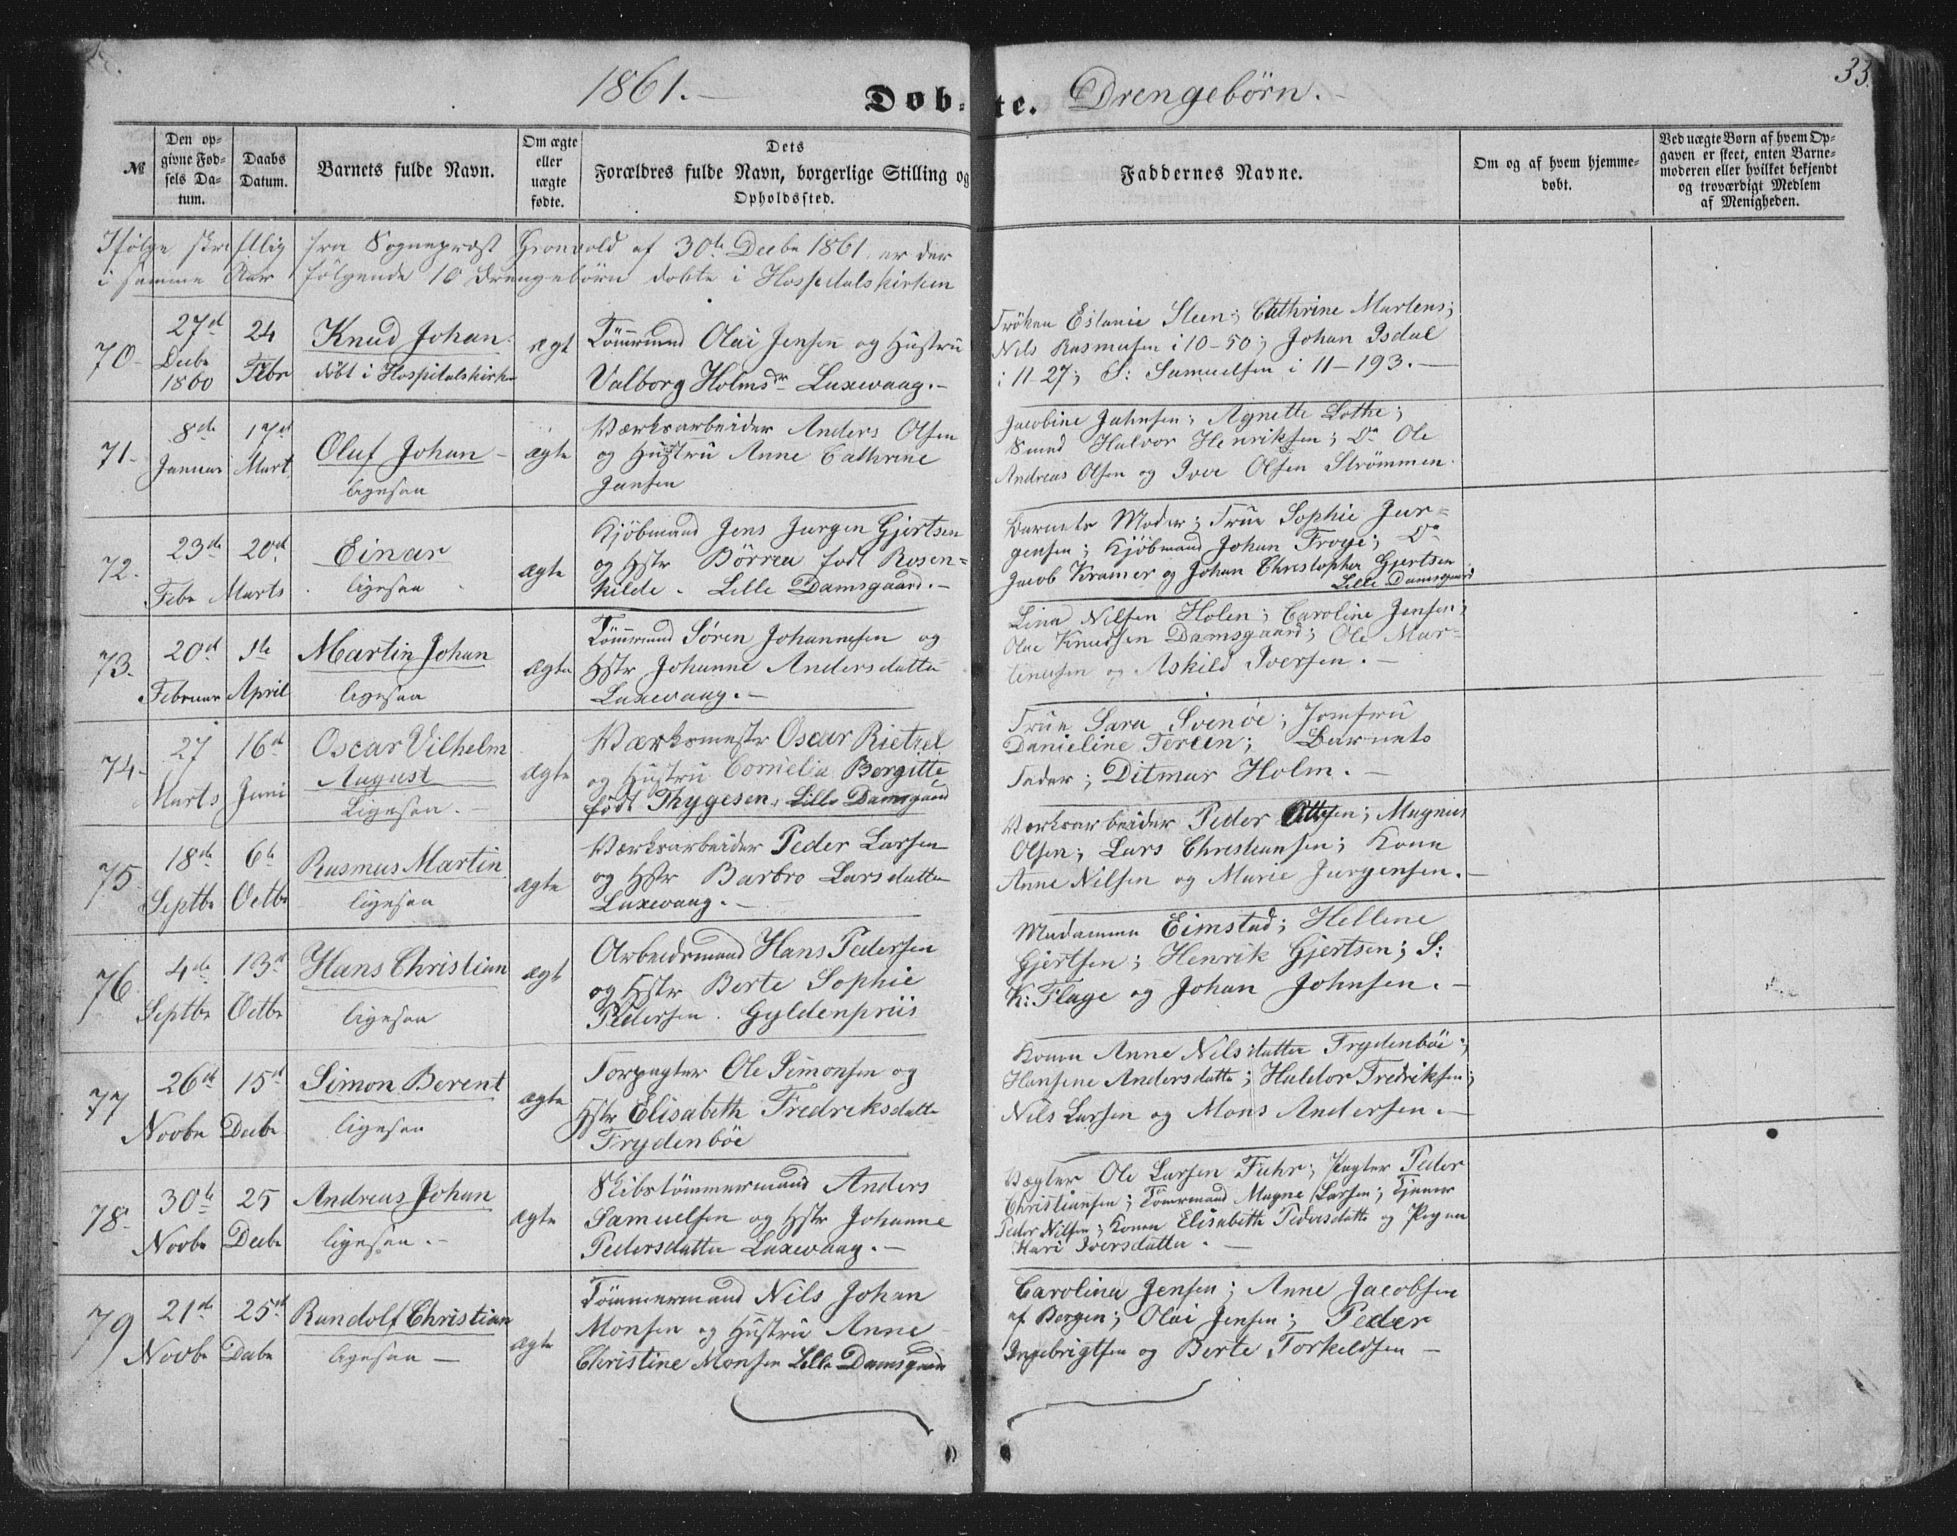 1861.
Døb-te.
Drengebørn.
33.
№
Den op-
givne Fød-
sels Da-
tum.
Daabs
Datum.
Barnets fulde Navn.
Om ægte
eller
uægte
fødte.
Dets
Forældres fulde Navn, borgerlige Stilling og
Opholdssted.
Faddernes Navne.
Om og af hvem hjemme-
døbt.
Ved uægte Børn af hvem Op-
gaven er skeet, enten Barne-
moderen eller hvilket bekjendt
og troværdigt Medlem
af Menigheden.
Ifølge skriftlig fra Sognepræst Gronvold af 30te Decbr 1861 er der
i samme Aar følgende 10 Drengebørn døbte i Hospitalskirken
70.
27de
Decbr
1860
24
Febr
Knud Johan
døbt i Hospitalskirken
ægt
Tømrmand Olai Jensen og Hustru
Valborg Holmsdr Laxevaag.
Frøken Estanie Steen; Cathrine Martens;
Nils Rasmusen i 10-50; Johan Isdal
i 11-27; S: Samuelsen i 11-193.
71.
8de
Januar
17de
Mart
Oluf Johan
ligesaa
ægte
Værksarbeider Anders Olsen
og Hustru Anne Cathrine
Jansen
Jacobine Jahnsen; Agnette Lothe;
Smed Halvor Henriksen; Do Ole
Andreas Olsen og Iver Olsen Strømmen.
72.
23de
Febr
20de
Marts
Einar
ligesaa
ægte
Kjöbmand Jens Jurgen Gjertsen
og Hstr Börrea født Rosen-
kilde. Lille Damsgaard.
Barnets Moder; Frue Sophie Jur-
gensen; Kjöbmand Johan Troye; Do
Jacob Kramer og Johan Christopher Gjertsen
Lille Damsgaard
73.
20de
Februar
1te
April
Martin Johan
ligesaa
ægte
Tømrmand Søren Johannesen og
Hstr Johanne Andersdatter
Laxevaag.
Lina Nilsen Holen; Caroline Jensen;
Olae Knudsen Damsgaard; Ole Mar-
tinusen og Askild Iversen.
74.
27
Marts
16de
Juni
Oscar Vilhelm
August
Ligesaa.
ægte
Værksmestr Oscar Rietzel
og Hustru Cornelia Bergitte
født Thygesen, Lille Damsgaard
Frue Sara Svenöe; Jomfru
Danieline Tereen; Barnets
Fader; Ditmar Holm.
75.
18de
Septbr
6te
Octbr
Rasmus Martin
ligesaa
ægte
Værksarbeider Peder Larsen
og Hstr Barbro Larsdatter
Laxevaag.
Værksarbeider Peder Ottesen; Magnus
Olsen; Lars Christiansen; Kone
Anne Nilsen og Marie Jurgensen.
76
4de
Septbr
13de
Octbr
Hans Christian
ligesaa
ægt
Arbeidsmand Hans Pedersen
og Hstr Berte Sophie
Pedersen. Gyldenpriis
Madamme Eimstad; Hellene
Gjertsen; Henrik Gjertsen; S:
K: Flage og Johan Johnsen.
77
26de
Novbr
15de
Decbr
Simon Berent
ligesaa
ægte
Forpagter Ole Simonsen og
Hstr Elisabeth Fredriksdatter
Frydenböe
Konen Anne Nilsdatter Frydenböe;
Hansene Andersdatter; Haldor Fredriksen;
Nils Larsen og Mons Andersen.
78.
30te
Novbr
25
Decbr
Andreas Johan
ligesaa.
ægte
Skibstömmermand Anders
Samuelsen og Hstr Johanne
Pedersdatter Laxevaag.
Vægter Ole Larsen Fuhr; Vægter Peder
Christiansen; Tømrmand Magne Larsen; Tjener
Peder Nilsen; Konen Elisabeth Pedersdatter og Pigen
Kari Iversdatter.
79
21de
Novbr
25de
Decbr
Randolf Christian
ligesaa
ægte
Tömmermand Nils Johan
Monsen og Hustru Anne
Christine Monsen Lille Damsgaard
Carolina Jensen; Anne Jacobsen
af Bergen; Olai Jensen; Peder
Ingebrigtsen og Berte Torkeldsen